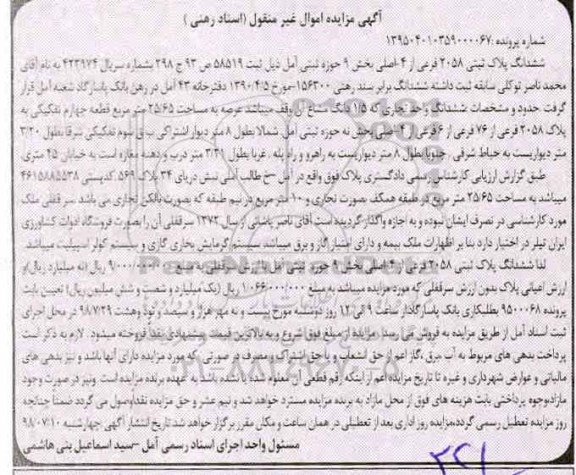 آگهی مزایده اموال غیر منقول (اسناد رهنی)
شماره پرونده: ۱۳۹۵۰۴۰۱۰۳۵۹۰۰۰۰۶۷
ششدانگ پلاک ثبتی ۲۰۵۸ فرعی از ۴-اصلی بخش ۹ حوزه ثبتی آمل ذیل ثبت ۵۸۵۱۹ ص ۹۳ ج ۲۹۸ بشماره سریال ۴۲۳۹۷۴ به نام آقای
محمد ناصر توکلی سابقه ثبت داشته ششدانگ برابر سند رهنی ۱۵۶۳۰۰-مورخ ۱۳۹۰/۴/۵ دفترخانه ۴۳ آمل در رهن بانک پاسارگاد شعبه آمل قرار
گرفت حدود و مشخصات ششدانگ واحد تجاری که ۱/۵ دانگ مشاع آن وقف میباشد عرصه به مساحت ۲۵/۶۵ متر مربع قطعه چهارم تفکیکی به
پلاک ۲۰۵۸ فرعی از ۷۶ فرعی از ۶ فرعی از ۴-اصلی بخش نه حوزه ثبتی آمل. شمالا بطول ۸ متر دیوار اشتراکی با ق سوم تفکیکی شرقا بطول ۳/۲۰
متر دیواریست به حیاط شرقی. جنوبا بطول ۸ متر دیواریست به راهرو و راه پله. غربا بطول ۳/۳۱ متر درب و دهنه مغازه است به خیابان ۴۵ متری.
طبق گزارش ارزیابی کارشناس رسمی دادگستری پلاک فوق واقع در آمل-خ طالب آملی نبش دریای ۳۴ پلاک ۵۶۹ کدپستی ۴۶۱۵۸۸۵۵۳۸
میباشد به مساحت ۲۵/۶۵ متر مربع در طبقه همکف بصورت تجاری و ۱۰ متر مربع در نیم طبقه که بصورت بالکن تجاری می باشد سرقفلی ملک
مورد کارشناسی در تصرف ایشان نبوده و به اجاره واگذار گردیده است آقای ناصر پاشائی از سال ۱۳۷۲ سرقفلی آن را بصورت فروشگاه ادوات کشاورزی
ایران تیلر در اختیار دارد بنا بر اظهارات ملک بیمه و دارای امتیاز گاز و برق میباشد سیستم گرمایش بخاری گازی و سیستم کولر اسپیلیت میباشد.
لذا ششدانگ پلاک ثبتی ۲۰۵۸ فرعی از ۴-اصلی بخش ۹ حوزه ثبتی آمل با ارزش سرقفلی به مبلغ ۹/۰۰۰/۰۰۰/۰۰۰ ریال (نه میلیارد ریال) و
ارزش اعیانی پلاک بدون ارزش سرقفلی که مورد مزایده میباشد به مبلغ ۱/۰۶۶/۰۰۰/۰۰۰ ریال (یک میلیارد و شصت و شش میلیون ریال) تعیین بابت
پرونده ۹۵۰۰۰۶۸ بطلبکاری بانک پاسارگاداز ساعت ۹ الی ۱۲ روز دوشنبه مورخ بیست و نه مهر هزار و سیصد و نود وهشت ۹۸/۷/۲۹ در محل اجرای
ثبت اسناد آمل از طریق مزایده به فروش می رسد. مزایده از مبلغ فوق شروع و به بالاترین قیمت پیشنهادی نقدا فروخته میشود. لازم به ذکر است
پرداخت بدهی های مربوط به آب، برق، گاز اعم از حق انشعاب و یا حق اشتراک و مصرف در صورتی که مورد مزایده دارای آنها باشد و نیز بدهی های
مالیاتی و عوارض شهرداری و غیره تا تاریخ مزایده اعم از اینکه رقم قطعی آن معلوم شده یا نشده باشد به عهده برنده مزایده است ونیز در صورت وجود
مازاد،وجوه پرداختی بابت هزینه های فوق از محل مازاد به برنده مزایده مسترد خواهد شد و نیم عشر و حق مزایده نقداوصول می گردد ضمناً چنانچه
روز مزایده تعطیل رسمی گردد،مزایده روز اداری بعد از تعطیلی در همان ساعت و مکان مقرر برگزار خواهد شد.تاریخ انتشار آگهی چهارشنبه ۹۸/۰۷/۱۰
مسئول واحد اجرای اسناد رسمی آمل –سید اسماعیل بنی هاشمی